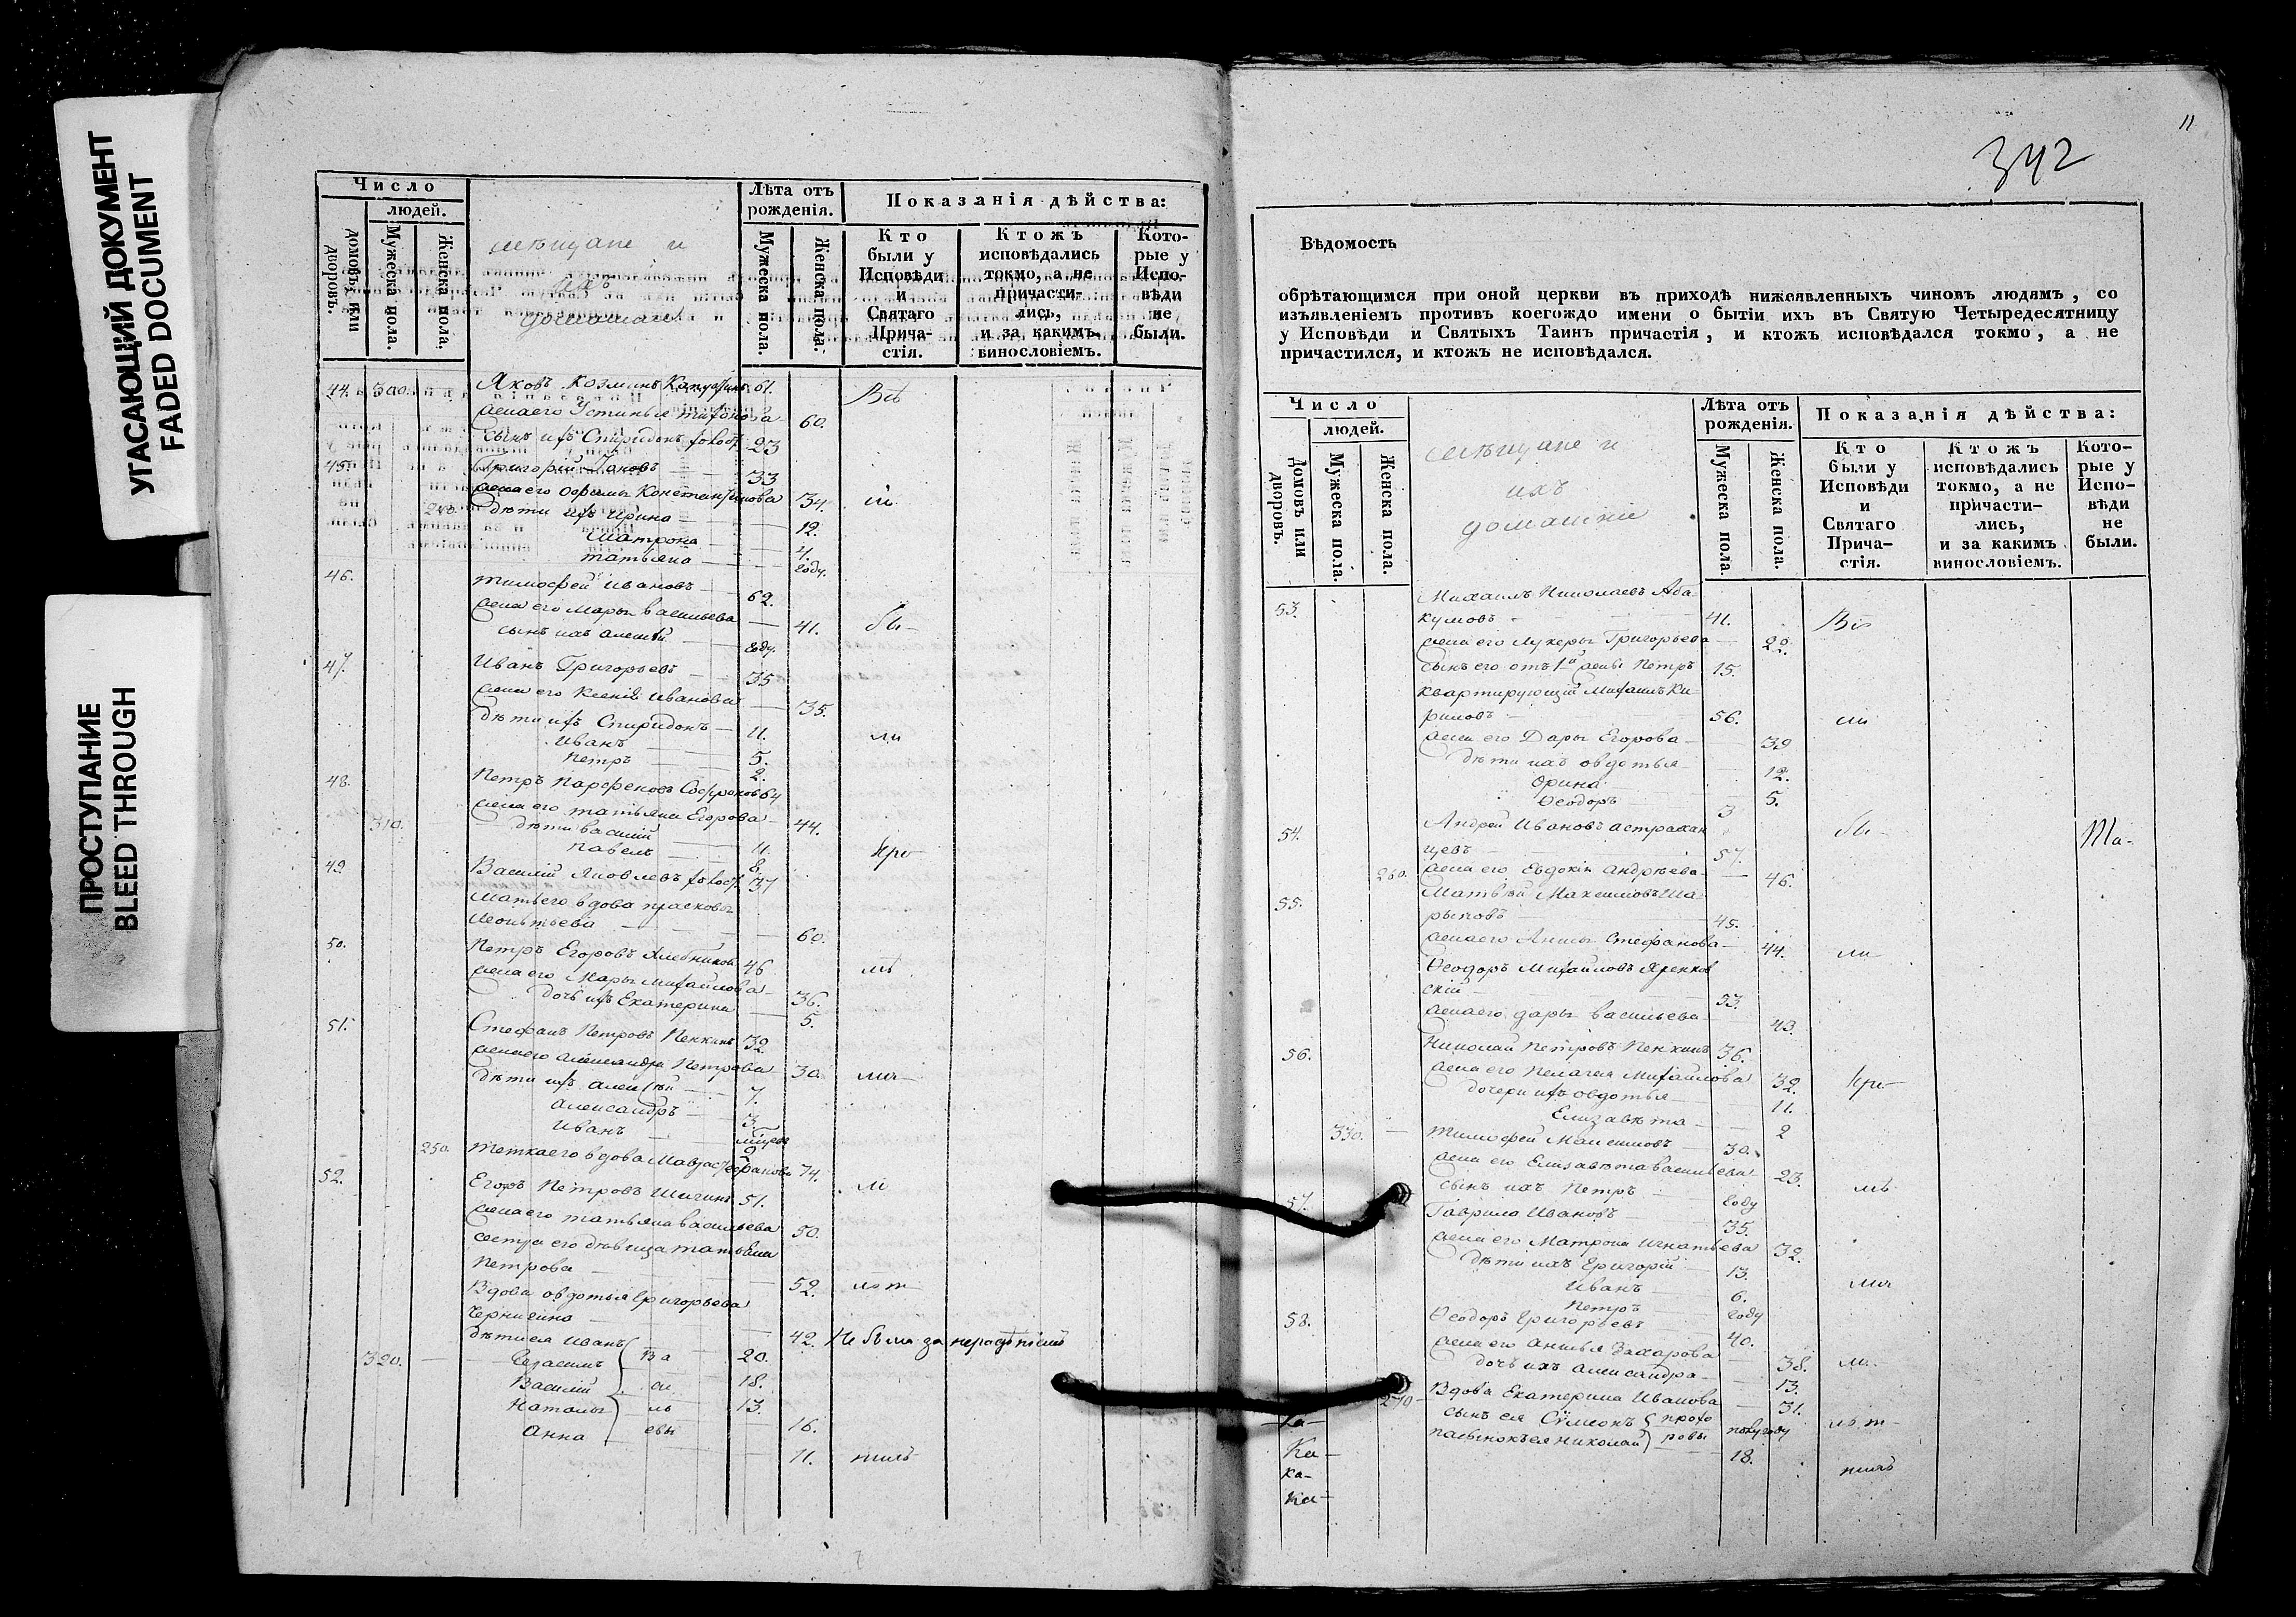 УГАСАЮЩИЙ ДОКУМЕНТ
FADED DOCUMENT
ПРОСТУПАНИЕ
BLEED THROUGH
Число
людей.
домовъ или дворовъ.
Мужеска пола.
Женска пола.
мѣщане и
ихъ
домашніе
Лѣта отъ рожденія.
Мужеска пола.
Женска пола.
Показанія дѣйства:
Кто были у Исповѣди и Святаго Прича-стія.
Ктожъ исповѣдались токмо, а не причасти-лись, и за какимъ винословіемъ.
Кото-рые у Испо-вѣди не были.
44. 300. Яковъ Козминъ 61. Всѣ
жена его Устинья 60.
сынъ ихъ Спиридонъ 23
45. Григорій Яковъ 33
жена его Константинова 34.
240. дѣти ихъ Ирина 12.
Матрона 4.
татьяна году.
46. тимофей Ивановъ 62.
жена его Марья васильева 41. бы-
сынъ ихъ алексѣй году.
47. Иванъ Григорьевъ 35
жена его Ксенія Иванова 35.
дѣти ихъ Спиридонъ 11. ли
Иванъ 5.
Петръ 2.
48. Петръ Парфеновъ Софроновъ 64
жена его татьяна Егорова 44.
310. дѣти василій 11.
павелъ 8. при-
49. Василій Яковлевъ холост. 37
Мать его вдова прасковья
Леонтьева 60.
50. Петръ Егоровъ Хлебниковъ 46
жена его Марья Михайлова 36.
дочь ихъ Екатерина 5.
51. Стефанъ Петровъ Пенкинъ 32.
жена его александра Петрова 30.
дѣти ихъ алексѣй 7.
александръ 3.
Иванъ
250. теткаего вдова Мавра Стефанова 74.
52. Егоръ Петровъ Шигинъ 51.
жена его татьяна васильева 50.
сестра его дѣвица татьяна
Петрова 52.
Вдова овдотья григорьева
Чернигина 42. Не были за нерадѣніемъ
дѣти ея Иванъ 20.
320. Герасимъ Ва 18.
Василій си 13.
Наталья ль 16.
анна евы 11.
11
342
Вѣдомость
обрѣтающимся при оной церкви въ приходѣ нижеявленныхъ чиновъ людямъ, со
изъявленіемъ противъ коегождо имени о бытіи ихъ въ Святую Четыредесятницу
у Исповѣди и Святыхъ Таинъ причастія, и ктожъ исповѣдался токмо, а не
причастился, и ктожъ не исповѣдался.
Число
людей.
домовъ или дворовъ.
Мужеска пола.
Женска пола.
мѣщане и
ихъ
домашніе
Лѣта отъ рожденія.
Мужеска пола.
Женска пола.
Показанія дѣйства:
Кто были у Исповѣди и Святаго Прича-стія.
Ктожъ исповѣдались токмо, а не причасти-лись, и за какимъ винословіемъ.
Кото-рые у Испо-вѣди не были.
53. Михаилъ Николаевъ Аба-
кумовъ 41. Всѣ
жена его Лукерья Григорьева 22.
сынъ его отъ 1й жены Петръ 15.
квартирующій Михаилъ Ки-
риловъ 56.
жена его Дарья Егорова 39
дѣти ихъ овдотья 12.
орина 5.
Ѳеодоръ 3
54. Андрей Ивановъ астрахан
цевъ 57. бы-
260. жена его Евдокія андрѣева 46.
55. Матвѣй МаксимовъШа-
рыповъ 45.
жена его Анисья Стефанова 44. ли
Ѳеодоръ Михайловъ Яренков
скій 53.
жена его дарья васильева 43.
56. Николай Петровъ Пенкинъ 36.
жена его Пелагея Михайлова 32. при-
дочери ихъ овдотья 11.
Елизавѣта 2
330. тимофей Максимовъ 30.
жена его Елизавѣта васильева 23.
сынъ ихъ Петръ году
57. Гаврило Ивановъ 35.
жена его Матрона Игнатьева 32.
дѣти ихъ Григорій 13.
Иванъ 6.
Петръ году
58. Ѳеодоръ Григорьевъ 40.
жена его анисья Захарова 38.
дочь ихъ александра 13.
270. Вдова Екатерина Иванова 31.
сынъ ея Сѵмеонъ прохо полугоду
пасынокъ ея Николай ровы 18.
Ка-
ка-